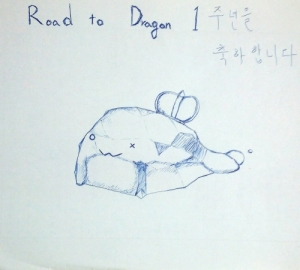 Road to Dragon 1 주년을
축하합니다